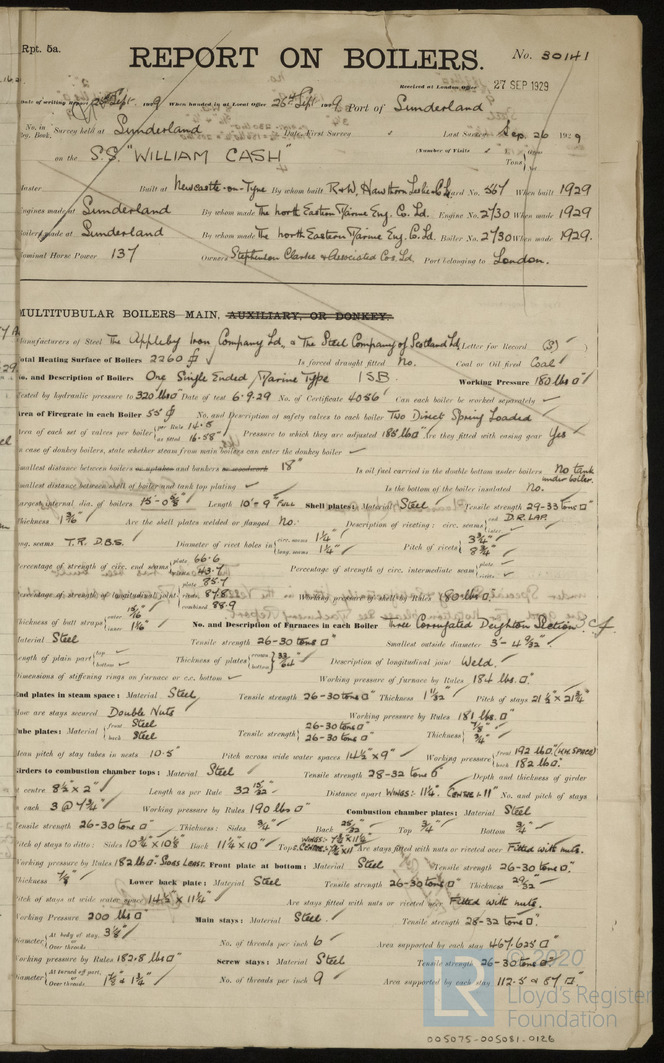 Rpt. 5a.
REPORT ON BOILERS.
No. 30141
Received at London Office 27 SEP 1929
Date of writing Report 26 Sept 1929 When handed in at Local Office 26th Sept 1929 Port of Sunderland
No. in Reg. Book. Survey held at Sunderland Date, First Survey Last Survey Sep. 26 1929
on the S.S. "WILLIAM CASH" (Number of Visits Gross Tons Net
Master Built at Newcastle-on-Tyne By whom built R & W. Hawthorn Leslie & Co Ld. Yard No. 567 When built 1929
Engines made at Sunderland By whom made The North Eastern Marine Eng. Co. Ld. Engine No. 2730 When made 1929
Boilers made at Sunderland By whom made The North Eastern Marine Eng. Co. Ld. Boiler No. 2730 When made 1929.
Nominal Horse Power 137 Owners Stephenson Clarke & Associated Cos. Ld. Port belonging to London.
MULTITUBULAR BOILERS MAIN, AUXILIARY, OR DONKEY.
Manufacturers of Steel The Appleby Iron Company Ld, & The Steel Company of Scotland Ld. Letter for Record (S)
Total Heating Surface of Boilers 2260 Is forced draught fitted No. Coal or Oil fired Coal
No. and Description of Boilers One Single Ended Marine Type 1SB. Working Pressure 180 lbs
Tested by hydraulic pressure to 320 lbs Date of test 6.9.29 No. of Certificate 4086 Can each boiler be worked separately
Area of Firegrate in each Boiler 55 No. and Description of safety valves to each boiler Two Direct Spring Loaded
Area of each set of valves per boiler per Rule 14.8 as fitted 16.58 Pressure to which they are adjusted 185 lbs Are they fitted with easing gear Yes
In case of donkey boilers, state whether steam from main boilers can enter the donkey boiler
Smallest distance between boilers or uptakes and bunkers or woodwork 18" Is oil fuel carried in the double bottom under boilers No tank under boiler.
Smallest distance between shell of boiler and tank top plating Is the bottom of the boiler insulated No.
Largest internal dia. of boilers Length 10'-9" FULL Shell plates: Material Steel Tensile strength 29-33 tons
Thickness 1 3/16" Are the shell plates welded or flanged No. Description of riveting: circ. seams end D.R. LAP. inter.
long. seams T.R. D.B.S. Diameter of rivet holes in circ. seams 1 1/4" long. seams 1 1/4" Pitch of rivets 3 3/4" 8 3/4"
Percentage of strength of circ. end seams plate 66.6 rivets 43.7 Percentage of strength of circ. intermediate seam plate rivets
Percentage of strength of longitudinal joint plate 85.7 rivets 87.8 combined 88.9 Working pressure of shell by Rules 180 lbs
Thickness of butt straps outer 15/16" inner 1 1/16" No. and Description of Furnaces in each Boiler Three Corrugated Deighton Section. 3 cf
Material Steel Tensile strength 26-30 tons Smallest outside diameter 3'-4 9/32"
Length of plain part top bottom Thickness of plates crown bottom 33/64" Description of longitudinal joint Weld.
Dimensions of stiffening rings on furnace or c.c. bottom Working pressure of furnace by Rules 184 lbs.
End plates in steam space: Material Steel Tensile strength 26-30 tons Thickness 1 1/32" Pitch of stays 21 1/2" x 21 3/4"
How are stays secured Double Nuts Working pressure by Rules 181 lbs.
Tube plates: Material front Steel back Steel Tensile strength 26-30 tons 26-30 tons Thickness 7/8" 3/4"
Mean pitch of stay tubes in nests 10.5" Pitch across wide water spaces 14 1/2" x 9" Working pressure front 192 lbs (W.W. SPACE) back 182 lbs.
Girders to combustion chamber tops: Material Steel Tensile strength 28-32 tons Depth and thickness of girder
at centre 8 1/2" x 2" Length as per Rule 32 15/32" Distance apart WINGS:- 11 1/4". CENTRE:- 11" No. and pitch of stays
in each 3 @ 7 3/4" Working pressure by Rules 190 lbs Combustion chamber plates: Material Steel
Tensile strength 26-30 tons Thickness: Sides 3/4" Back 25/32" Top 3/4" Bottom 3/4"
Pitch of stays to ditto: Sides 10 3/4" x 10 1/8" Back 11 1/4" x 10" Top Are stays fitted with nuts or riveted over Fitted with nuts.
Working pressure by Rules 182 lbs SIDES LEAST. Front plate at bottom: Material Steel Tensile strength 26-30 tons.
Thickness 7/8" Lower back plate: Material Steel Tensile strength 26-30 tons Thickness 29/32"
Pitch of stays at wide water space 14 1/2" x 11 1/4" Are stays fitted with nuts or riveted over Fitted with nuts.
Working Pressure 200 lbs Main stays: Material Steel. Tensile strength 28-32 tons.
Diameter At body of stay, or Over threads 3 1/8" No. of threads per inch 6 Area supported by each stay 467.625
Working pressure by Rules 182.8 lbs Screw stays: Material Steel Tensile strength 26-30 tons
Diameter At turned off part, or Over threads 1 5/8" & 1 3/4" No. of threads per inch 9 Area supported by each stay 112.5 & 87
© 2020
LR
Lloyd's Register
Foundation
005075-005081-0126